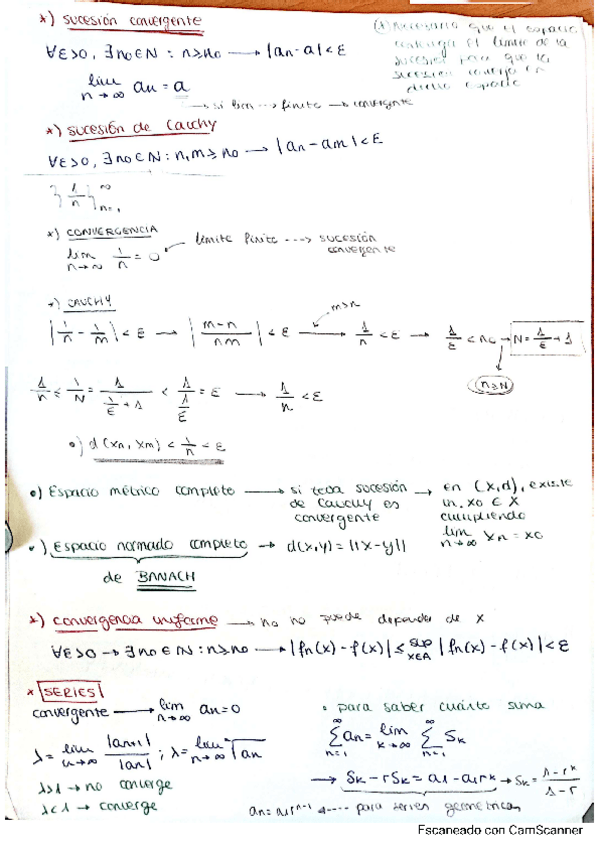 *) sucesión convergente
∀ε>0, ∃n₀∈N : n≥n₀ → |an - a| < ε
lim n→∞ an = a
→ si lim → finito → convergente
(*) Necesario que el espacio
contenga el límite de la
sucesión para que la
sucesión converja en
dicho espacio
*) sucesión de Cauchy
∀ε>0, ∃n₀∈N : n,m≥n₀ → |an - am| < ε
{1/n}∞ n=1
*) CONVERGENCIA
lim n→∞ 1/n = 0 ← límite finito ---> sucesión
convergente
*) CAUCHY
|1/n - 1/m| < ε → |m-n / nm| < ε → m>n 1/n < ε → 1/ε < n → N = 1/ε + 1
n≥N
1/n ≤ 1/N = 1/(1/ε + 1) < 1/(1/ε) = ε → 1/n < ε
•) d(xn, xm) < 1/n < ε
•) Espacio métrico completo → si toda sucesión
de Cauchy es
convergente
→ en (X,d), existe
un x₀ ∈ X
cumpliendo
lim n→∞ xn = x₀
•) Espacio normado completo → d(x,y) = ||x-y||
de BANACH
*) convergencia uniforme → n₀ no puede depender de x
∀ε>0 → ∃n₀∈N : n≥n₀ → |fn(x) - f(x)| ≤ sup x∈A |fn(x) - f(x)| < ε
* SERIES
convergente → lim n→∞ an = 0
λ = lim n→∞ |an+1| / |an| ; λ = lim n→∞ ⁿ√an
λ>1 → no converge
λ<1 → converge
• para saber cuánto suma
∞ Σ n=1 an = lim k→∞ ∞ Σ n=1 Sk
→ Sk - rSk = a1 - a1rᵏ → Sk = 1-rᵏ / 1-r
an = a1rⁿ⁻¹ ←---- para series geométricas
Escaneado con CamScanner